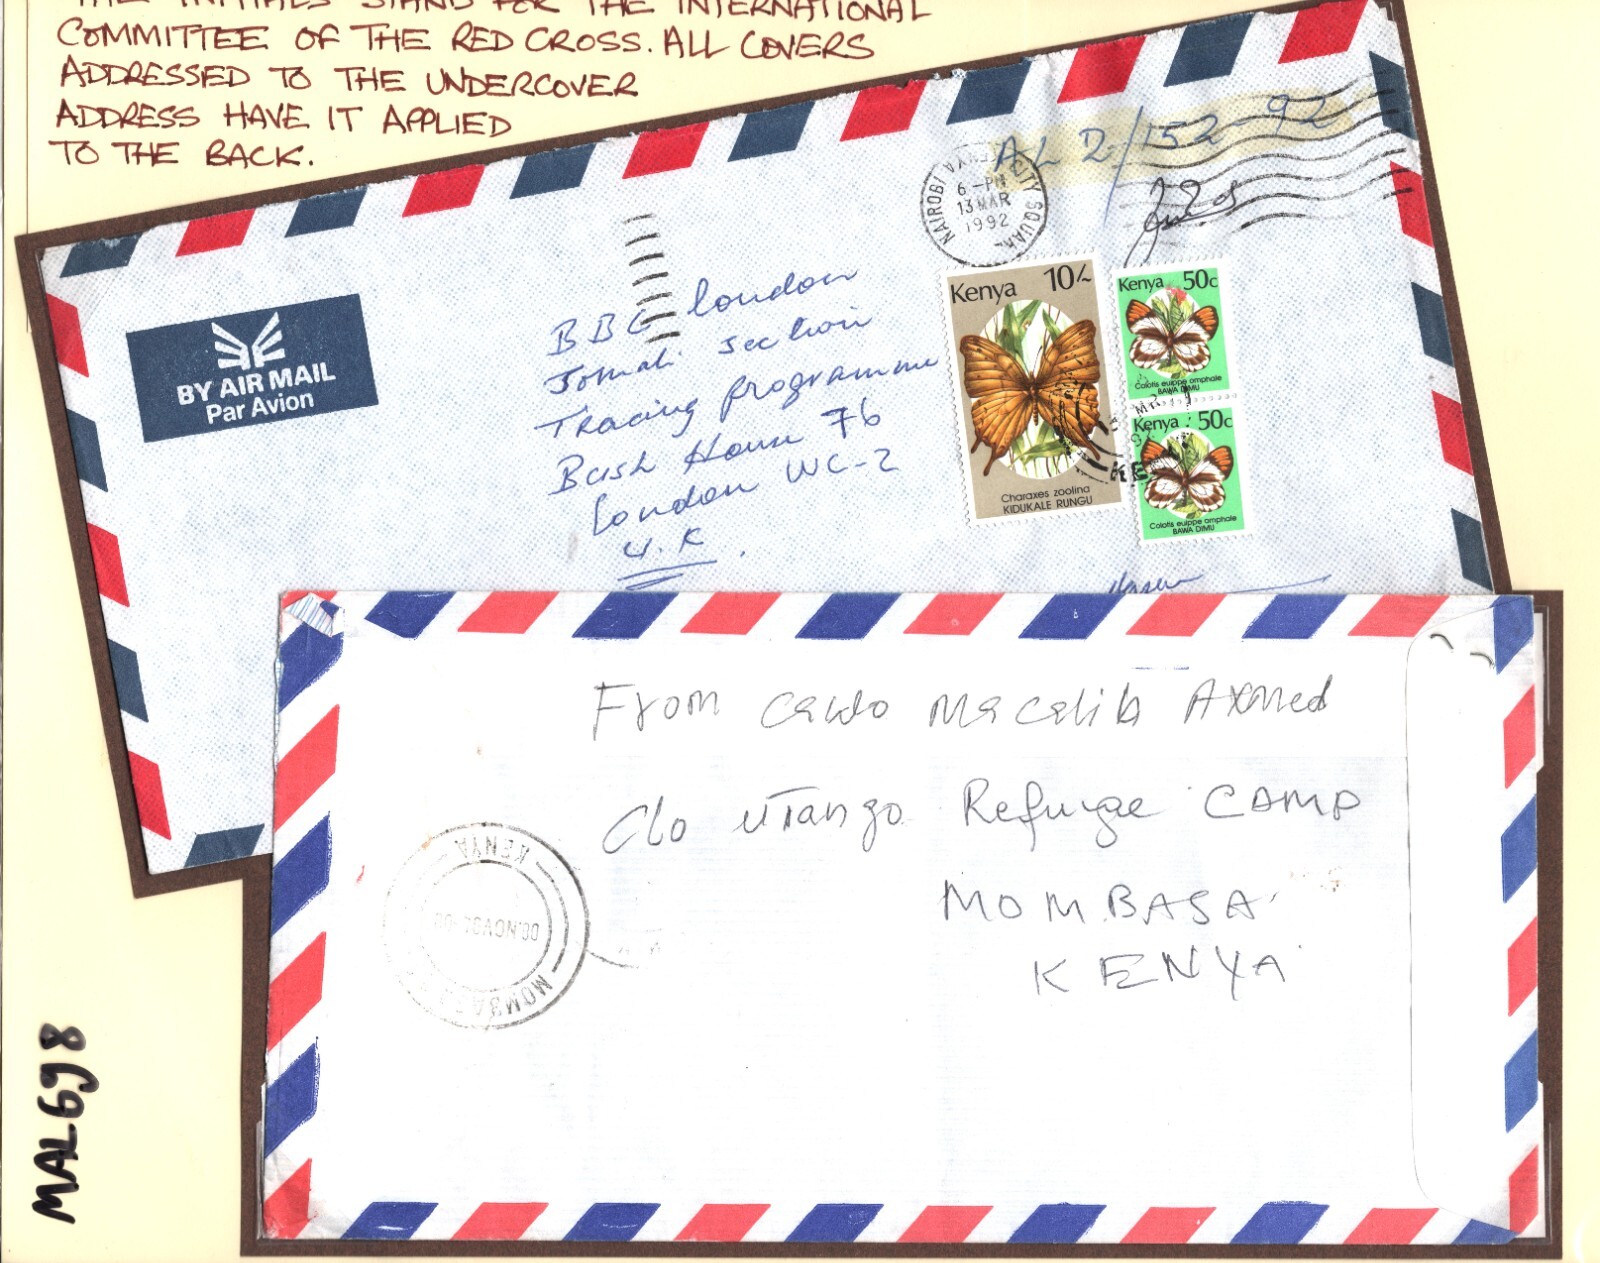 THE INITIALS STAND FOR THE INTERNATIONAL
COMMITTEE OF THE RED CROSS. ALL COVERS
ADDRESSED TO THE UNDERCOVER
ADDRESS HAVE IT APPLIED
TO THE BACK.
AL 2/152-92
NAIROBI KENYA CITY SQUARE
6-PM
13 MAR
1992
BY AIR MAIL
Par Avion
BBC London
Somali section
Tracing programme
Bush House 76
London WC-2
U.K.
Kenya 10/-
Charaxes zoolina
KIDUKALE RUNGU
Kenya 50c
Colotis euippe omphale
BAWA DIMU
Kenya 50c
Colotis euippe omphale
BAWA DIMU
KE
From cawo Macalib Axmed
C/o UTango Refugee CAMP
MOMBASA
KENYA
KENYA
MOMBASA
MAL698